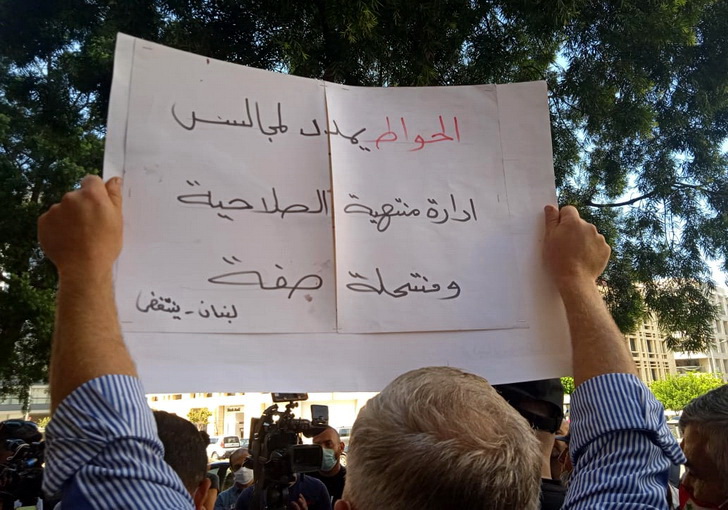 الحواط يمدد لمجالس
ادارة منتهية الصلاحية
ومنتحلة صفة
لبنان - ينتفض